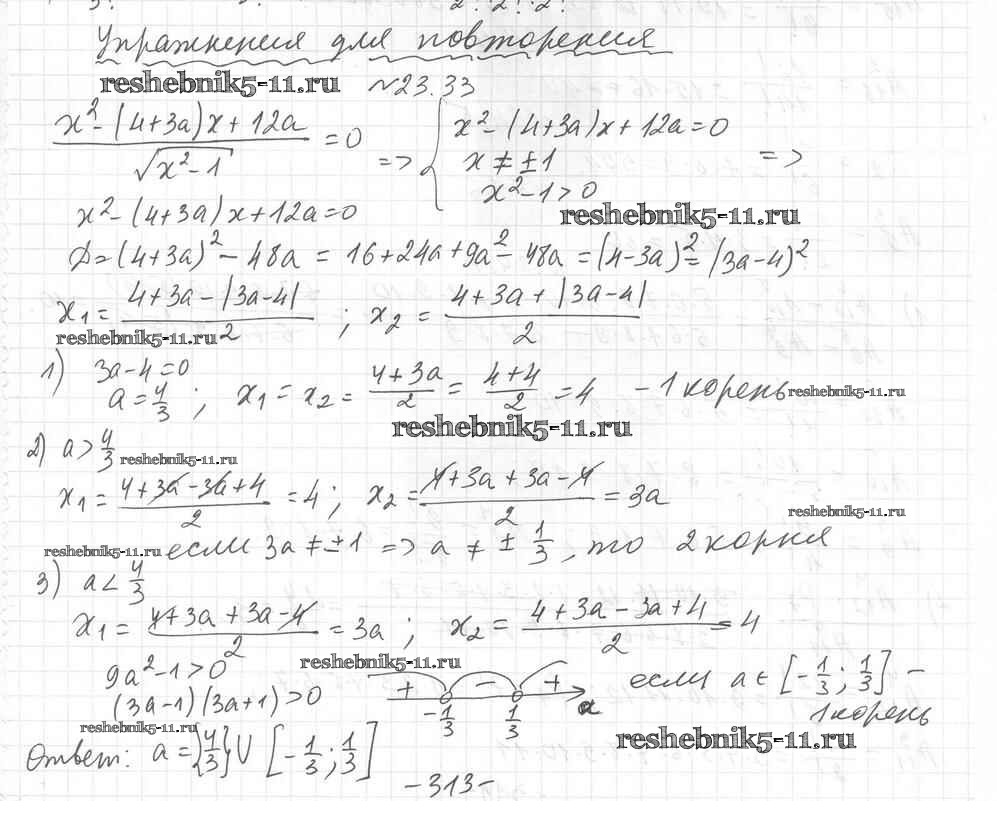 Упражнения для повторения
reshebnik5-11.ru №23.33
(x² - (4+3a)x + 12a)/√(x²-1) = 0 => { x² - (4+3a)x + 12a = 0
x ≠ ±1 =>
x² - 1 > 0
x² - (4+3a)x + 12a = 0 reshebnik5-11.ru
D = (4+3a)² - 48a = 16 + 24a + 9a² - 48a = (4-3a)² = (3a-4)²
x₁ = (4+3a-|3a-4|)/2 ; x₂ = (4+3a+|3a-4|)/2
reshebnik5-11.ru
1) 3a-4=0
a = 4/3 ; x₁ = x₂ = (4+3a)/2 = (4+4)/2 = 4 - 1 корень reshebnik5-11.ru
reshebnik5-11.ru
2) a > 4/3 reshebnik5-11.ru
x₁ = (4+3a-3a+4)/2 = 4 ; x₂ = (4+3a+3a-4)/2 = 3a
reshebnik5-11.ru
reshebnik5-11.ru если 3a ≠ ±1 => a ≠ ± 1/3 , то 2 корня
3) a < 4/3
x₁ = (4+3a+3a-4)/2 = 3a ; x₂ = (4+3a-3a+4)/2 = 4
9a² - 1 > 0 reshebnik5-11.ru
(3a-1)(3a+1) > 0 + - + a если a ∈ [-1/3 ; 1/3] -
-1/3 1/3 1 корень
reshebnik5-11.ru reshebnik5-11.ru
Ответ: a = {4/3} ∪ [-1/3 ; 1/3]
-313-